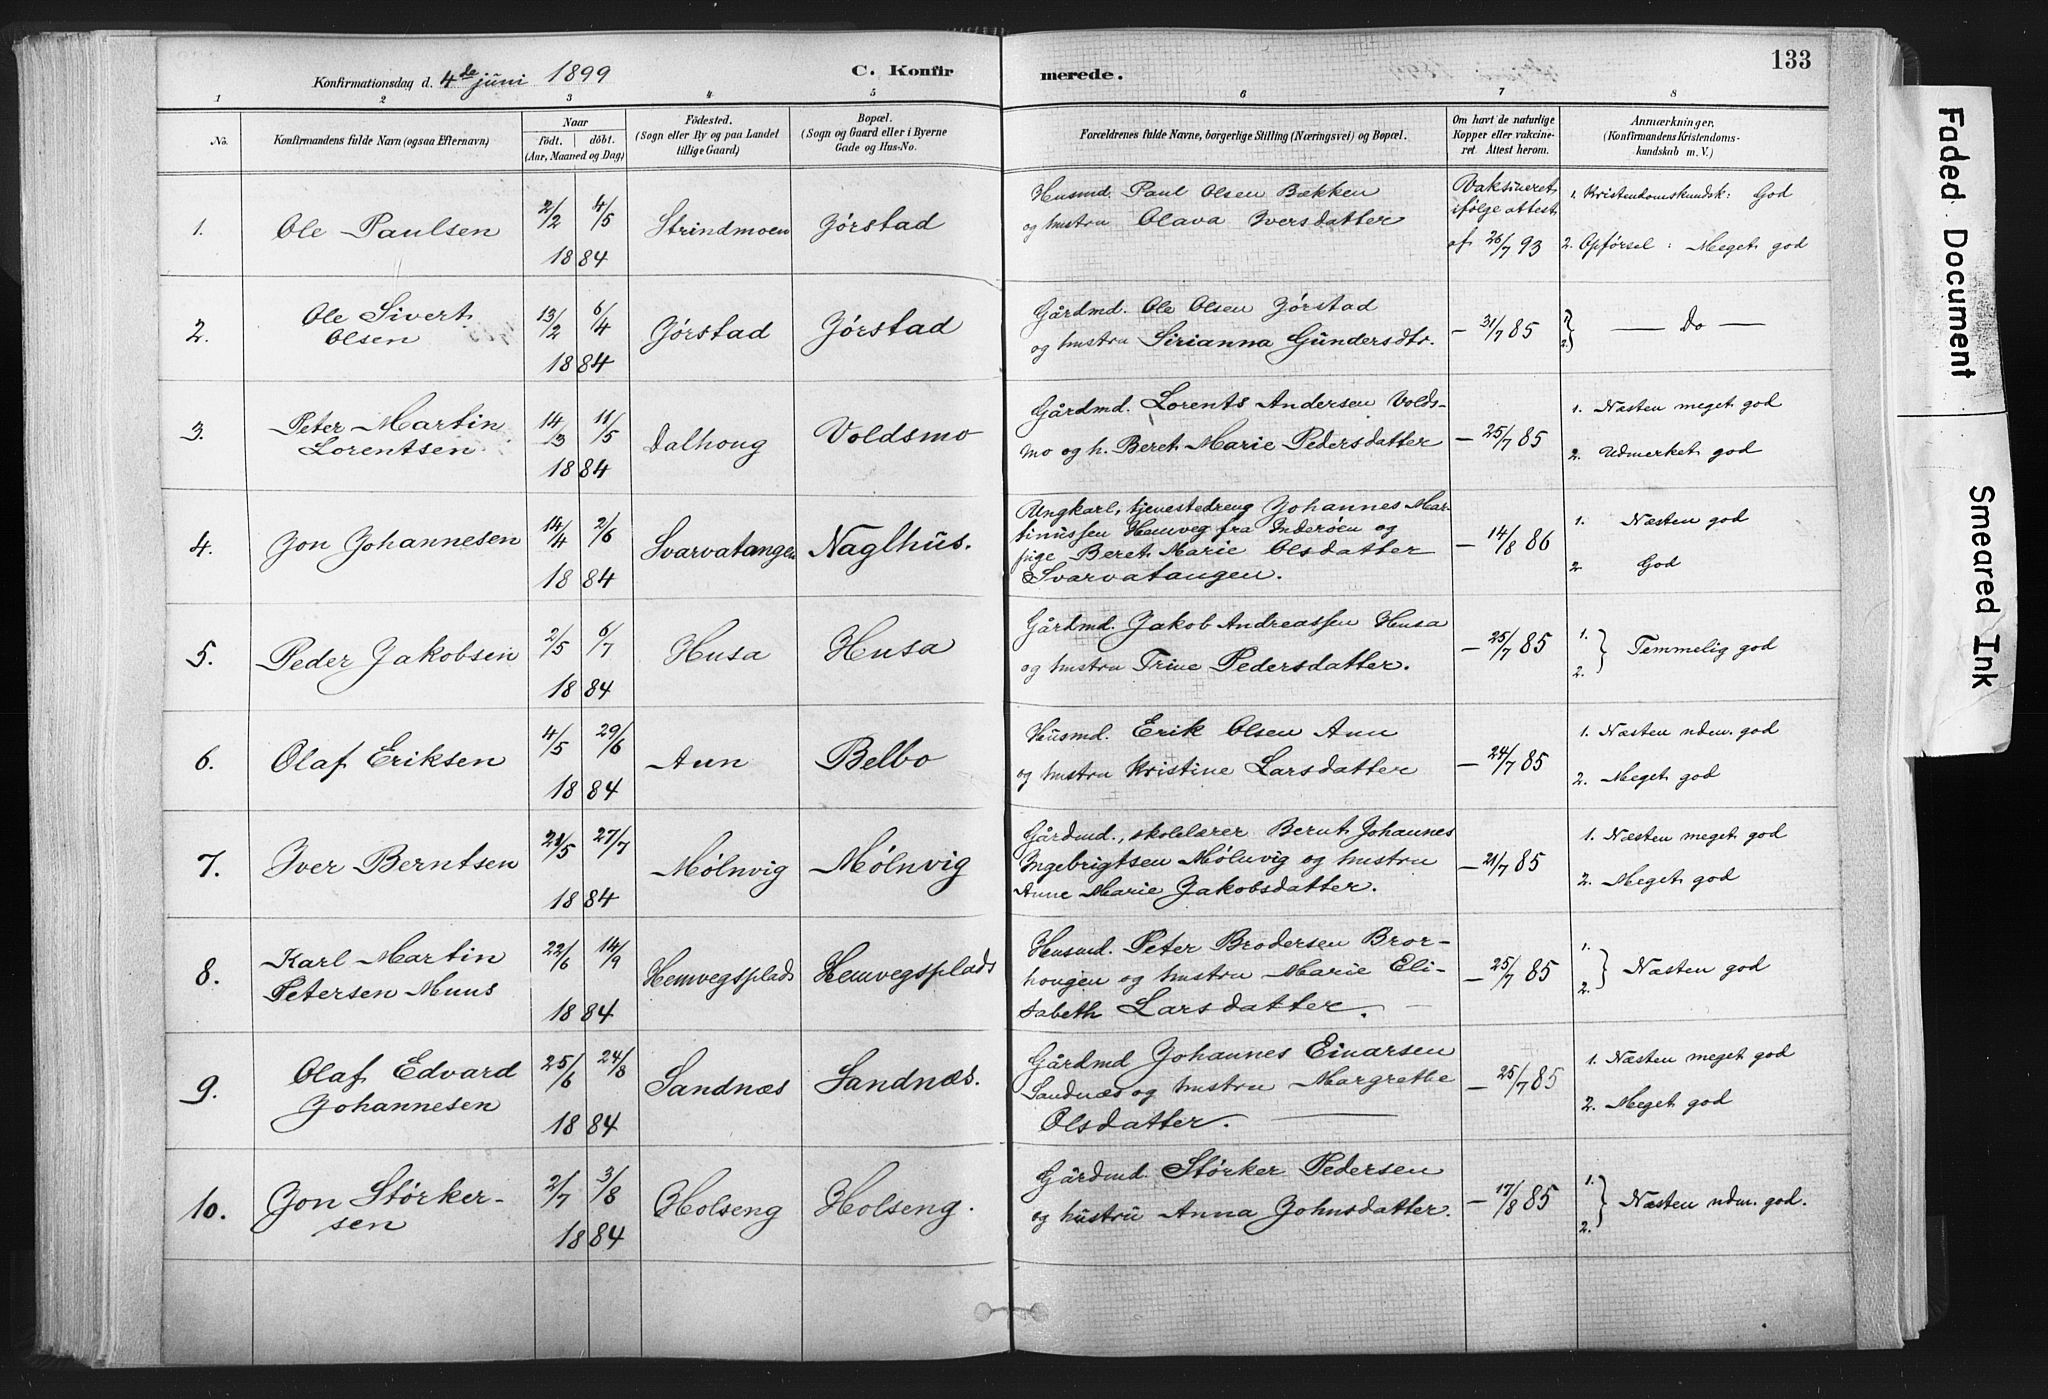 Konfirmationsdag d. 4de juni 1899
C. Konfirmerede.
133
1 2 3 4 5 6 7 8
No.
Konfirmandens fulde Navn (ogsaa Efternavn)
Naar
Födt. döbt.
(Aar, Maaned og Dag)
Födested.
(Sogn eller By og paa Landet
tillige Gaard)
Bopæl.
(Sogn og Gaard eller i Byerne
Gade og Hus-No.
Forældrenes fulde Navne, borgerlige Stilling (Næringsvei) og Bopæl.
Om havt de naturlige
Kopper eller vakcine-
ret Attest herom.
Anmærkninger,
(Konfirmandens Kristendoms-
kundskab m. V.)
1. Ole Paulsen 2/2 4/5 1884 Strindmoen Jørstad
Husmd. Paul Olsen Bækken
og hustru Olava Iversdatter
Vaksineret
ifølge attest
af 26/7 93
1. Kristendomskundsk: God
2. Opførsel: Meget god
2. Ole Sivert
Olsen
13/2 6/4 1884 Jørstad Jørstad
Gårdmd. Ole Olsen Jørstad
og hustru Sirianna Gundersdtr.
— 31/7 85
1. 2. } — Do —
3. Peter Martin
Lorentsen
14/3 11/5 1884 Dalhoug Voldsmo
Gårdmd. Lorents Andersen Volds-
mo og h. Beret Marie Pedersdatter
— 25/7 85
1. Næsten meget god
2. Udmerket god
4. Jon Johannesen 14/4 2/6 1884 Svarvatangen Naglhus.
Ungkarl, tjenestedreng Johannes Mar-
tinussen Hemveg fra Inderøen og
pige Beret Marie Olsdatter
Svarvatangen.
— 14/8 86
1. Næsten god
2. God
5. Peder Jakobsen 2/5 6/7 1884 Husa Husa
Gårdmd. Jakob Andreassen Husa
og hustru Trine Pedersdatter.
— 25/7 85
1. 2. } Temmelig god
6. Olaf Eriksen 4/5 29/6 1884 Aun Belbo
Husmd. Erik Olsen Aun
og hustru Kristine Larsdatter
— 24/7 85
1. Næsten udm. god
2. Meget god
7. Iver Berntsen 21/5 27/7 1884 Mølnvig Mølnvig
Gårdmd., skolelærer Bernt Johannes
Ingebrigtsen Mølnvig og hustru
Anne Marie Jakobsdatter.
— 21/7 85
1. Næsten meget god
2. Meget god
8. Karl Martin
Petersen Muus
22/6 14/9 1884 Hemvegsplads Hemvegsplads
Husmd. Peter Brodersen Bror-
hougen og hustru Marie Eli-
sabeth Larsdatter.
— 25/7 85
1. 2. } Næsten god
9. Olaf Edvard
Johannesen
25/6 24/8 1884 Sandnæs Sandnæs.
Gårdmd Johannes Einarsen
Sandnæs og hustru Margrethe
Olsdatter.
— 25/7 85
1. Næsten meget god
2. Meget god
10. Jon Størker-
sen
2/7 3/8 1884 Holseng Holseng.
Gårdmd. Størker Pedersen
og hustru Anna Johnsdatter.
— 17/8 85
1. 2. } Næsten udm. god.
Faded Document
Smeared Ink